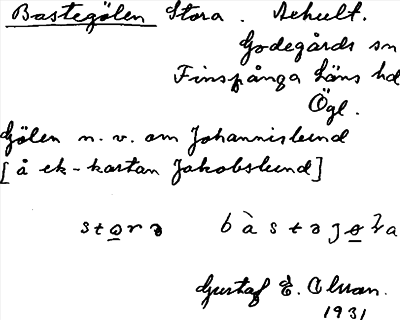 Bastegölen Stora. Rehult.
Godegårds sn
Finspånga läns hd
Ögl.
Gölen n. v. om Johannislund
[å ek-kartan Jakobslund]
stɷrə bàstəjɷɽa
Gustaf E. Olsson.
1931